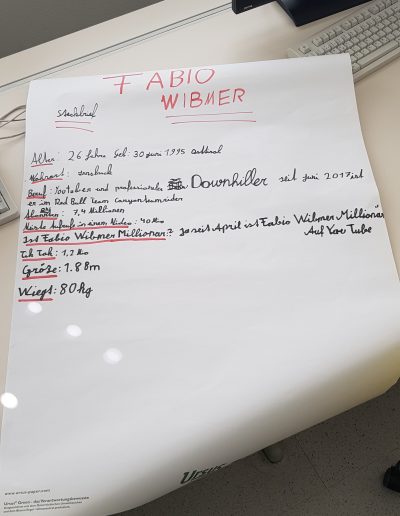 FABIO
WIBMER
Steckbrief
Alter: 26 Jahre Geb: 30 Juni 1995 Osttirol
Wohnort: Innsbruck
Beruf: Youtuber und professioneller Downhiller seit Juni 2017 ist
er im Red Bull Team
Abonnenten: 7,4 Millionen
Meiste Aufrufe in einem Video: 40 Mio
Ist Fabio Wibmer Millionär? Ja seit April ist Fabio Wibmer Millionär
Auf You Tube
Tik Tok: 1,2 Mio
Größe: 1.88m
Wiegt: 80kg
www.ursus-paper.com
Ursus